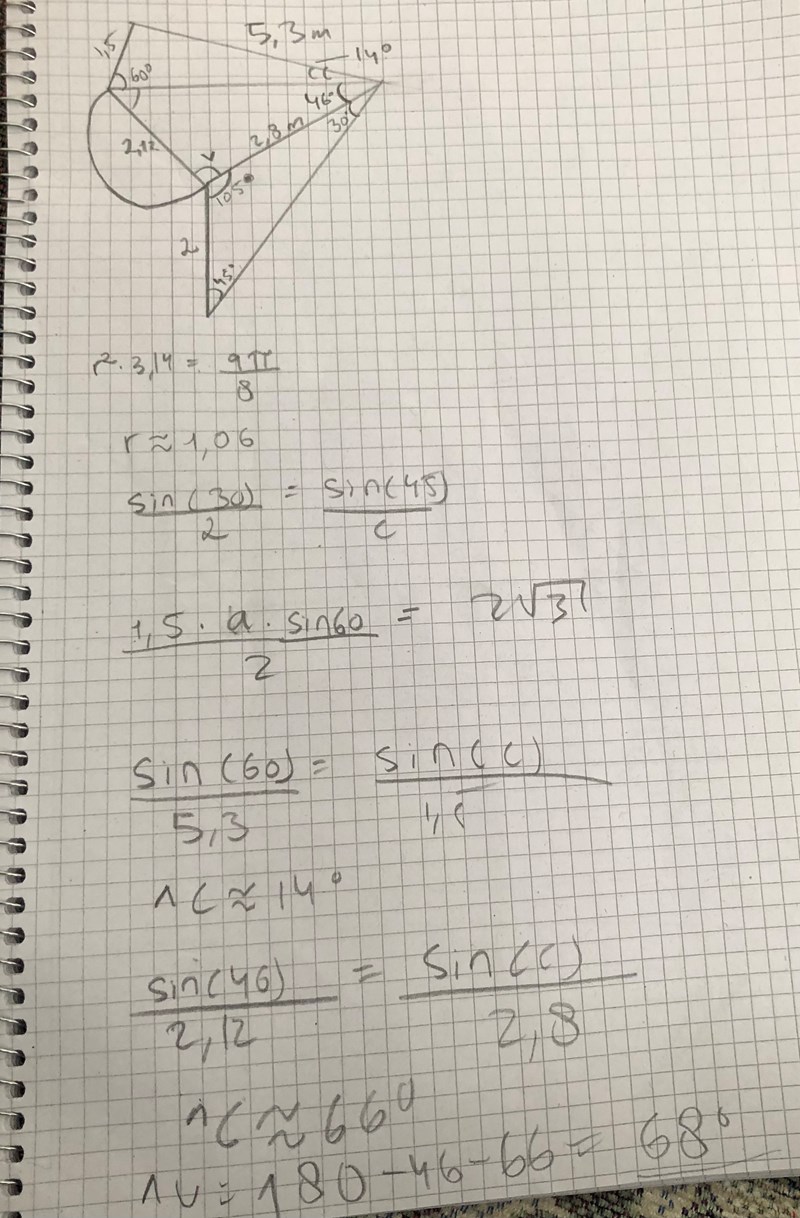 1,5
5,3 m
14°
60°
c
46°
30°
2,8 m
2,12
v
105°
2
45°
r² · 3,14 = 9π/8
r ≈ 1,06
sin(30)/2 = sin(45)/c
1,5 · a · sin60/2 = 2√3
sin(60)/5,3 = sin(c)/1,5
^C ≈ 14°
sin(46)/2,12 = sin(c)/2,8
^C ≈ 66°
^v = 180 - 46 - 66 = 68°